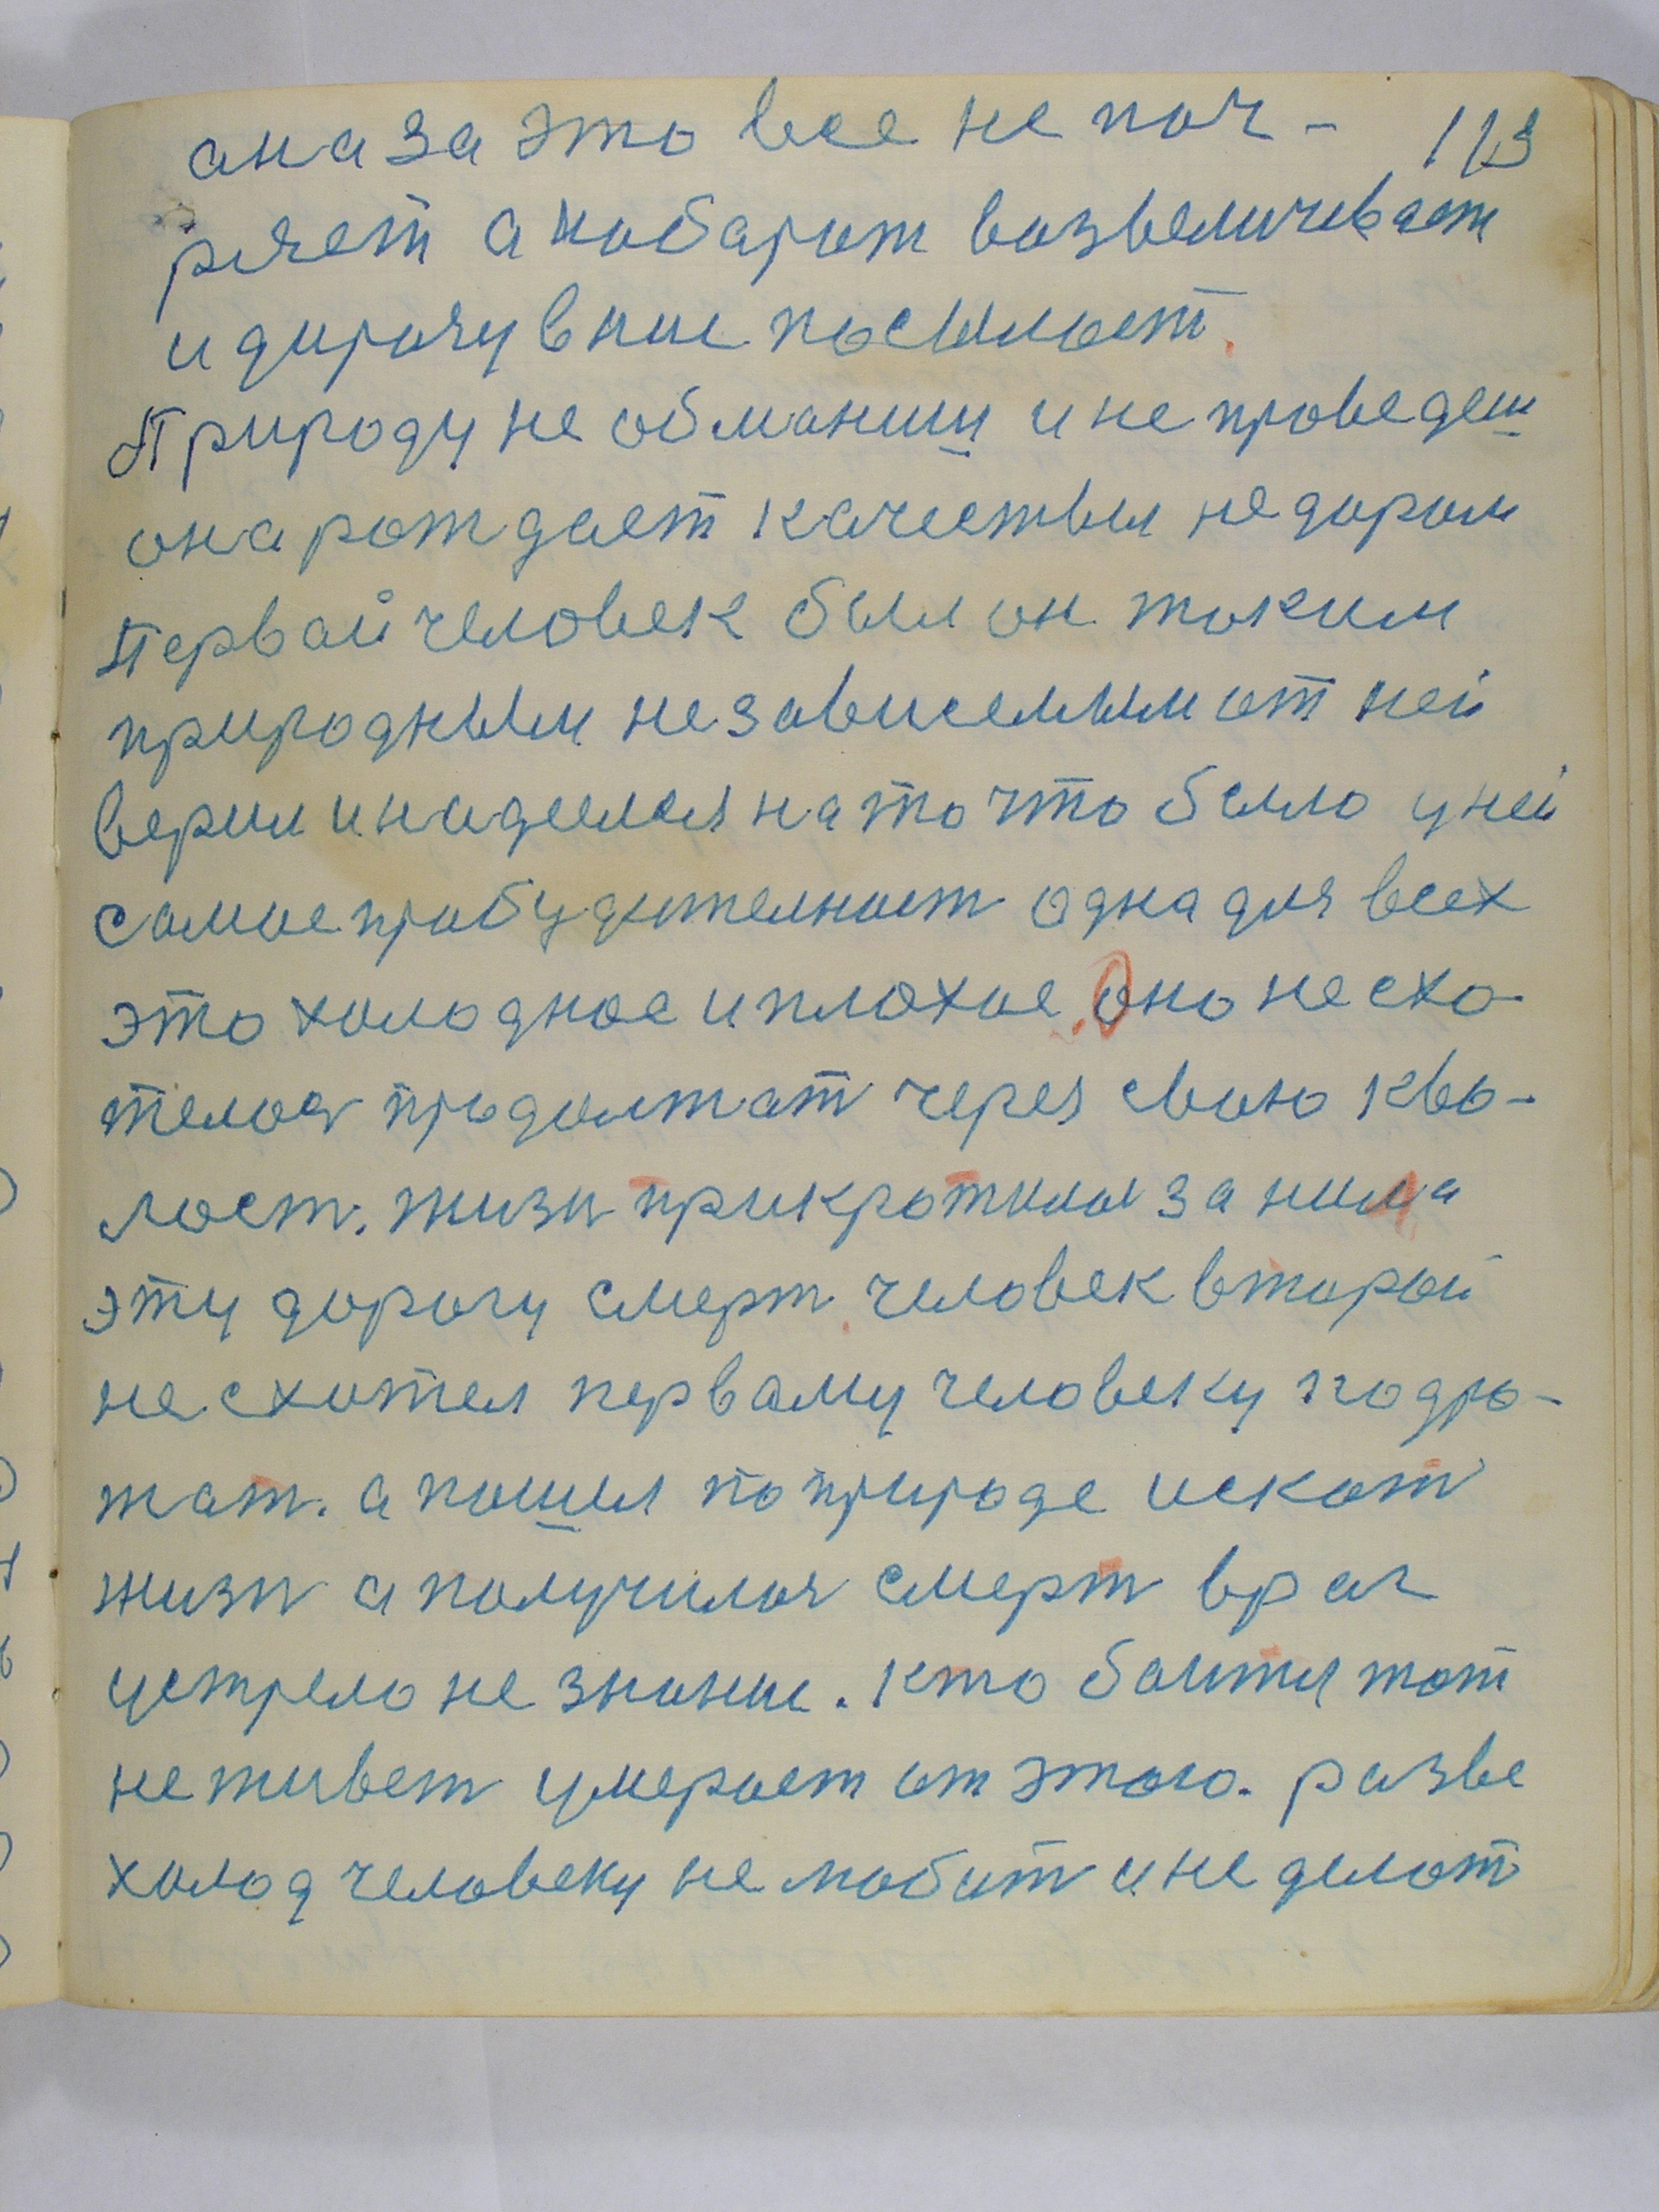 она за это все не поч- 113
ряет а наобарот возвеличевает
и дорогу в ние посылает.
Природу не обманиш и не проведеш
она рождает качествы не даром
Первай человек был он таким
природным независемым от ней
верил и надеелся на то что было у ней
самае прабудителност одна для всех
это холоднае и плохое. Оно не схо-
телося продолжат через свою ква-
лост. жизн прикротила за ним а
эту дорогу смерт. человек вторай
не схотел первому человеку подра-
жат. а пошел по природе искат
жизн а получился смерт враг
устрело не знание. кто баится тот
не живет умерает от этого. разве
холод человеку не любит и не делат